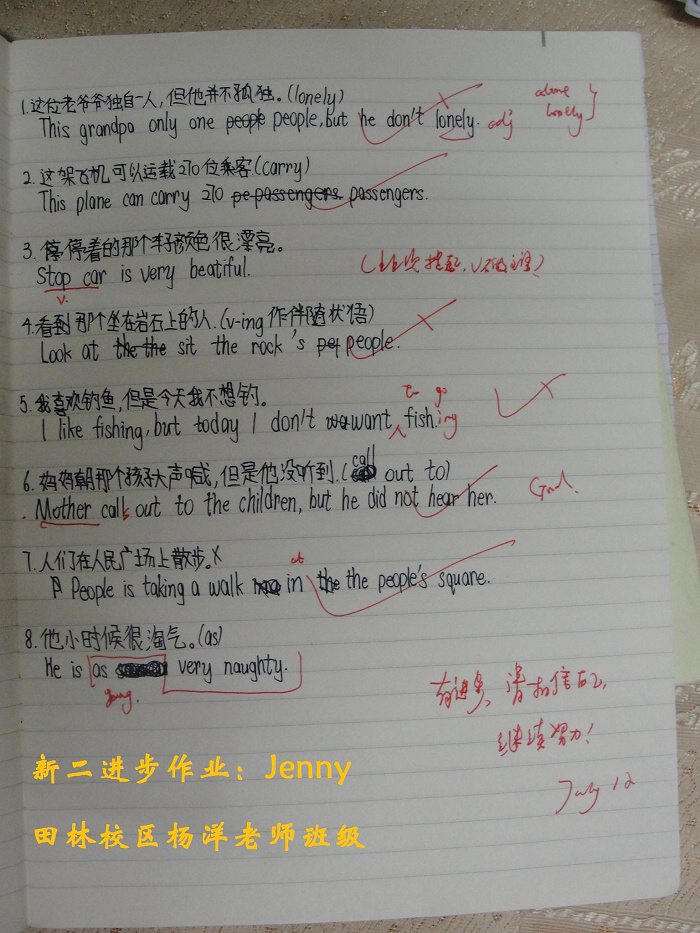 1.这位老爷爷独自一人,但他并不孤独。(lonely)
This grandpa only one people people, but he don't lonely. adj
alone
lonely
2.这架飞机可以运载270位乘客.(carry)
This plane can carry 270 pe passengers. passengers.
3.停停着的那个车子颜色很漂亮。
Stop car is very beatiful.
v.
4.看到那个坐在岩石上的人.(v-ing 作伴随状语)
Look at the the sit the rock's people.
5.我喜欢钓鱼,但是今天我不想钓。
to go
I like fishing, but today I don't want fishing
6.妈妈朝那个孩子大声喊,但是他没听到.(call out to)
Mother calls out to the children, but he did not hear her. Good.
7.人们在人民广场上散步。
at
People is taking a walk in the the people's square.
8.他小时候很淘气。(as)
He is as very naughty.
young.
有进步,请相信自己,
继续努力!
July 12
新二进步作业:Jenny
田林校区杨洋老师班级